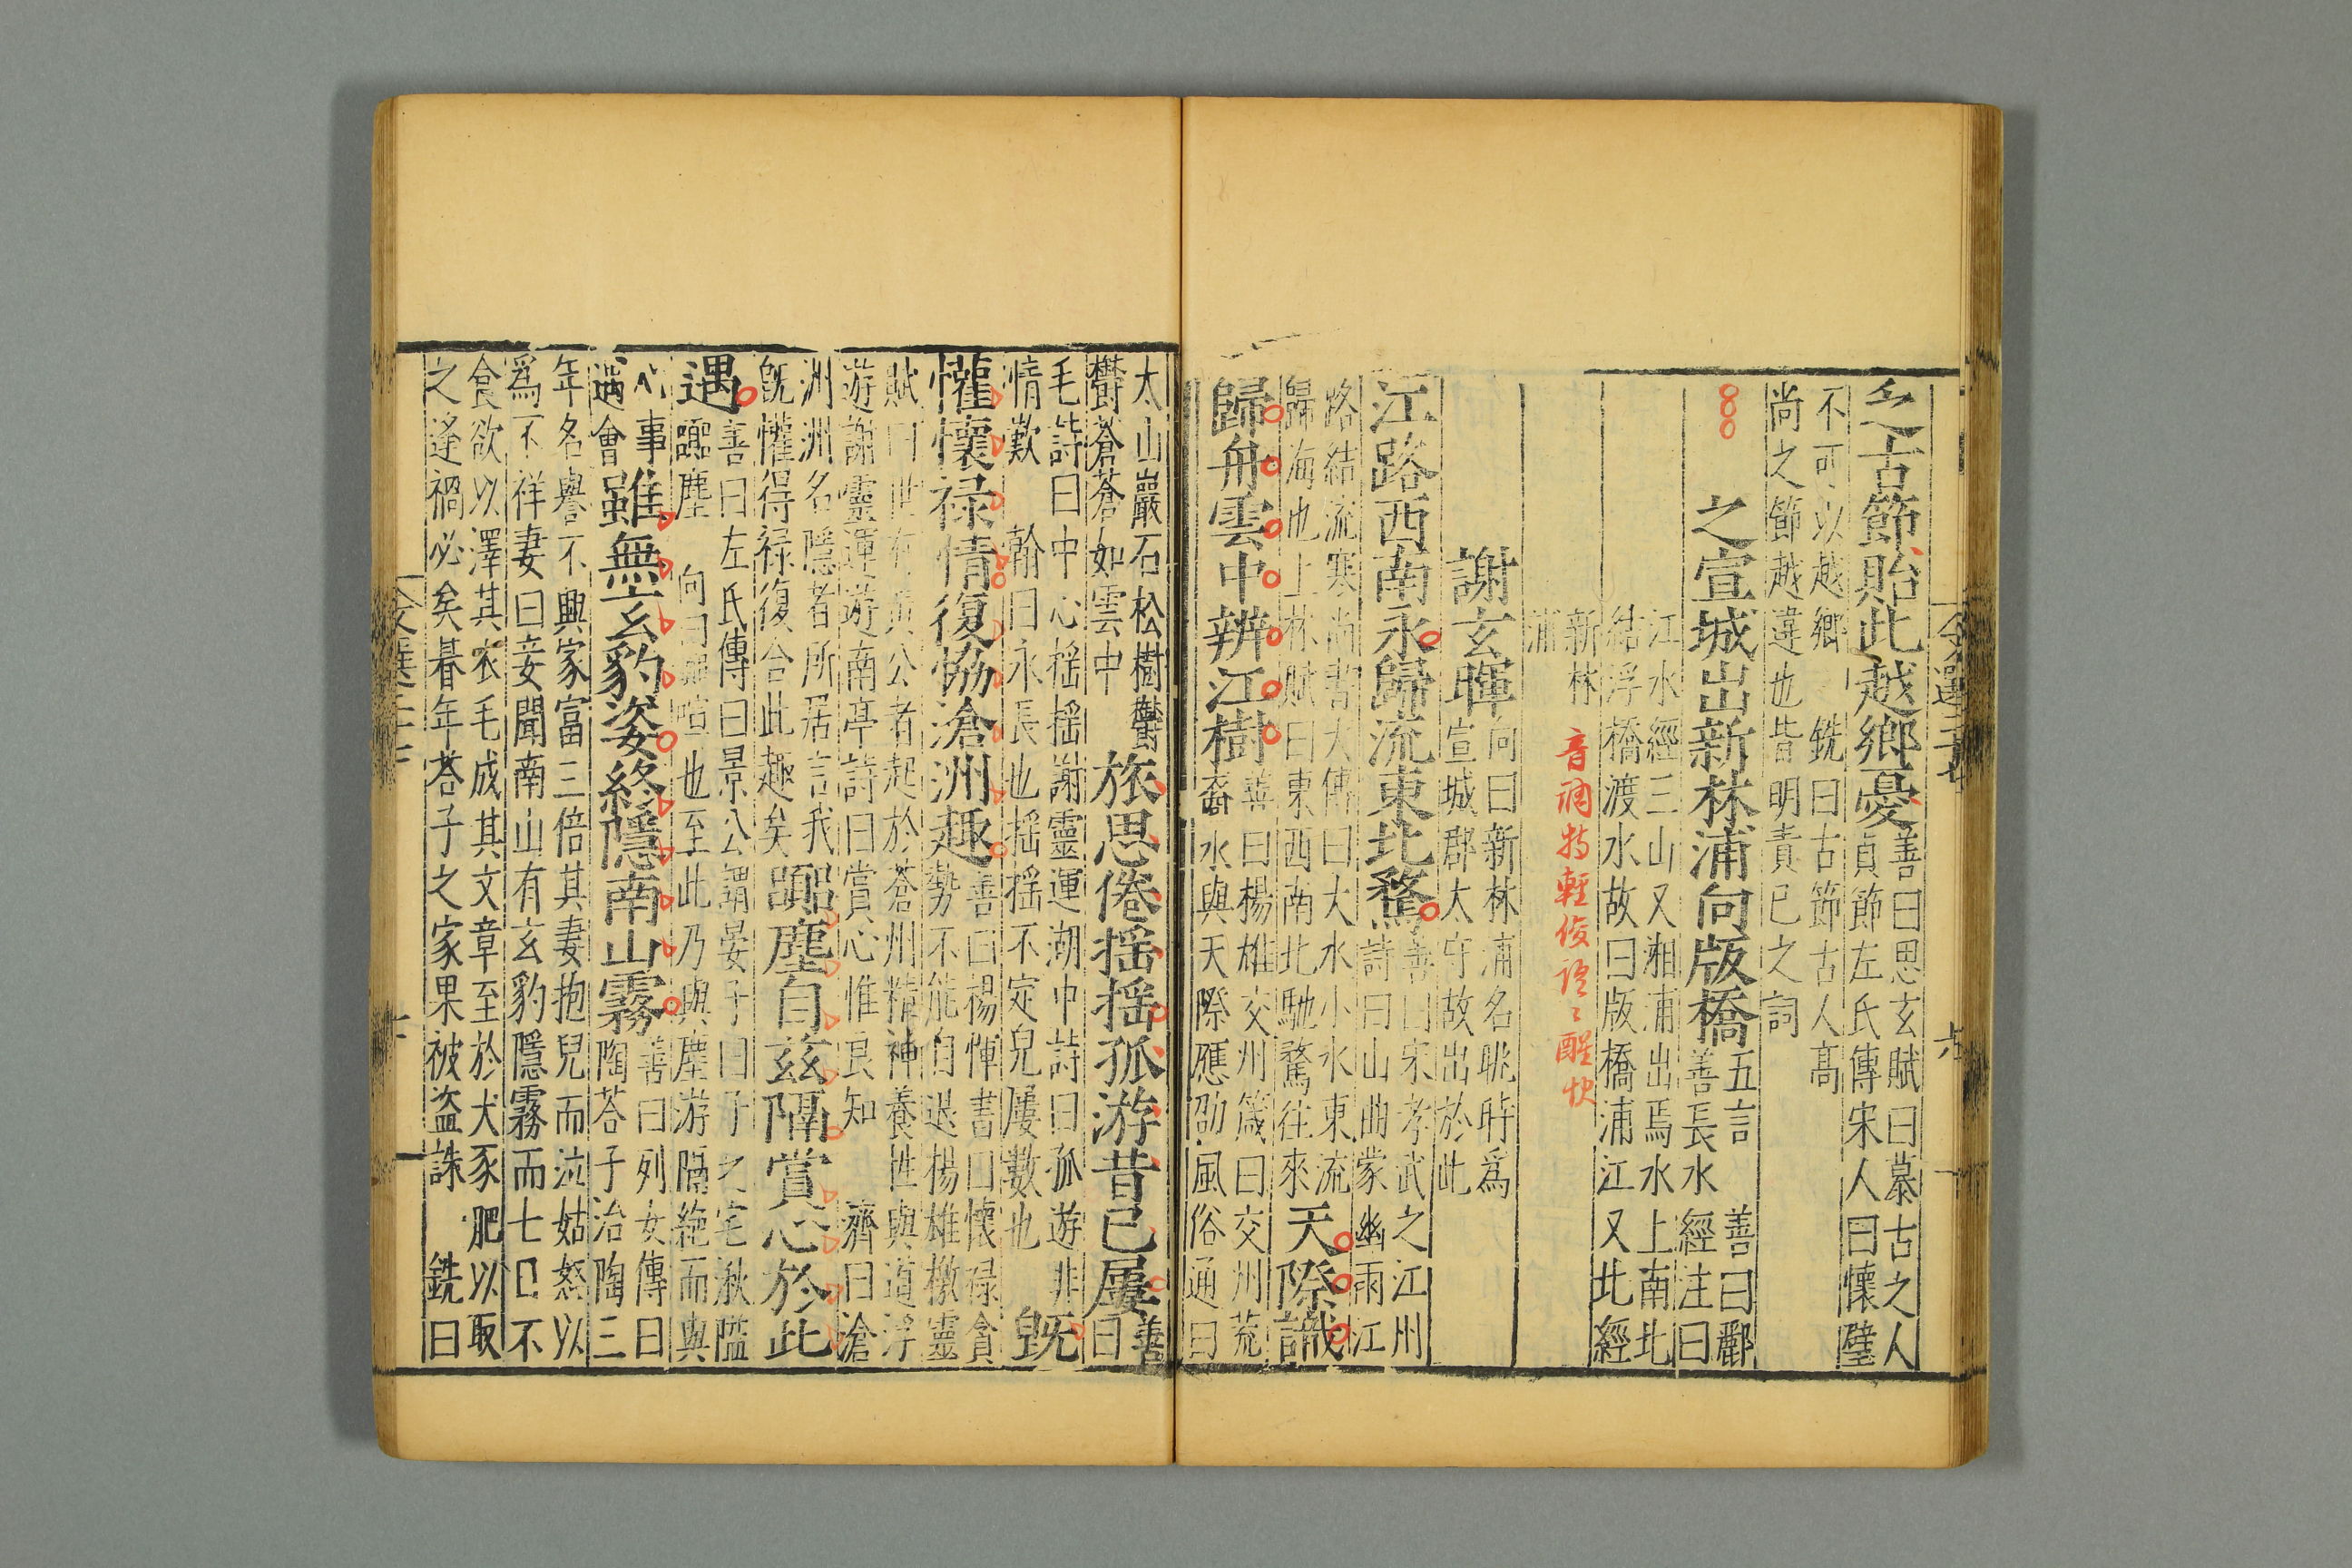 乏古節貽此越鄉憂
善曰思玄賦曰慕古之人
貞節左氏傳宋人曰懷璧
不可以越鄉 銑曰古節古人高
尚之節越違也皆明責已之詞
之宣城出新林浦向版橋
五言 善曰酈
善長水經注曰
江水經三山又相浦出焉水上南北
結浮橋渡水故曰版橋浦江又北經
新林
浦
音調特輕俊語々醒快
謝玄暉
向曰新林浦名眺時爲
宣城郡太守故出於此
江路西南永歸流東北騖
善曰宋孝武之江州
詩曰山曲蒙幽雨江
路結流寒尚書大傳曰大水小水東流
歸海也上林賦曰東西南北馳騖往來
天際識
歸舟雲中辨江樹
善曰楊雄交州箴曰交州荒
裔水與天際應劭風俗通曰
太山巖石松樹鬱
鬱蒼蒼如雲中
旅思倦揺揺孤游昔已屢
善
曰
毛詩曰中心揺揺謝靈運湖中詩曰孤遊非
情歎 翰曰永長也揺揺不定皃屢數也
旣
懽懷禄情復恊滄洲趣
善曰楊惲書曰懷禄貪
勢不能自退楊雄檄靈
賦曰世有黃公者起於蒼州精神養性與道浮
遊謝靈運遊南亭詩曰賞心惟良知 濟曰滄
洲洲名隱者所居言我
旣懽得禄復合此趣矣
囂塵自茲隔賞心於此
遇
善曰左氏傳曰景公謂晏子曰子之宅湫隘
囂塵 向曰囂喧也至此乃與塵游隔絶而與
心事
遇會
雖無玄豹姿終隱南山霧
善曰列女傳曰
陶荅子治陶三
年名譽不興家富三倍其妻抱兒而泣姑怒以
爲不祥妻曰妾聞南山有玄豹隱霧而七日不
食欲以澤其衣毛成其文章至於犬豕肥以取
之逢禍必矣朞年荅子之家果被盗誅 銑曰